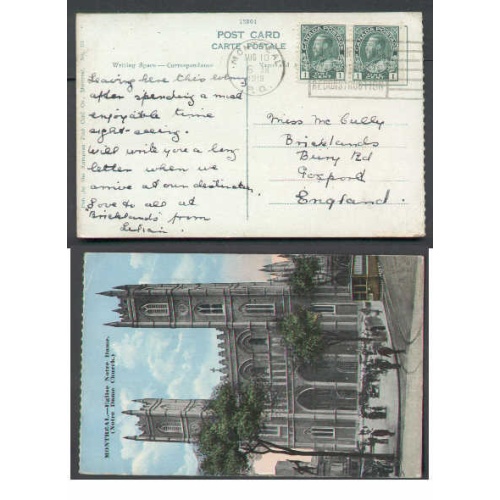 15801
POST CARD
CARTE POSTALE
Writing Space — Correspondance
Leaving here this
after spending a most
enjoyable time
sight-seeing.
Will write you a long
letter when we
arrive at our destination.
Love to all at
Bricklands from
MONTREAL
10
CANADA POSTAGE
1 1
CANADA POSTAGE
1 1
Miss Mc Cully
Bricklands
Bury Rd
Gosport
England.
MONTREAL.—Eglise Notre Dame.
(Notre Dame Church.)